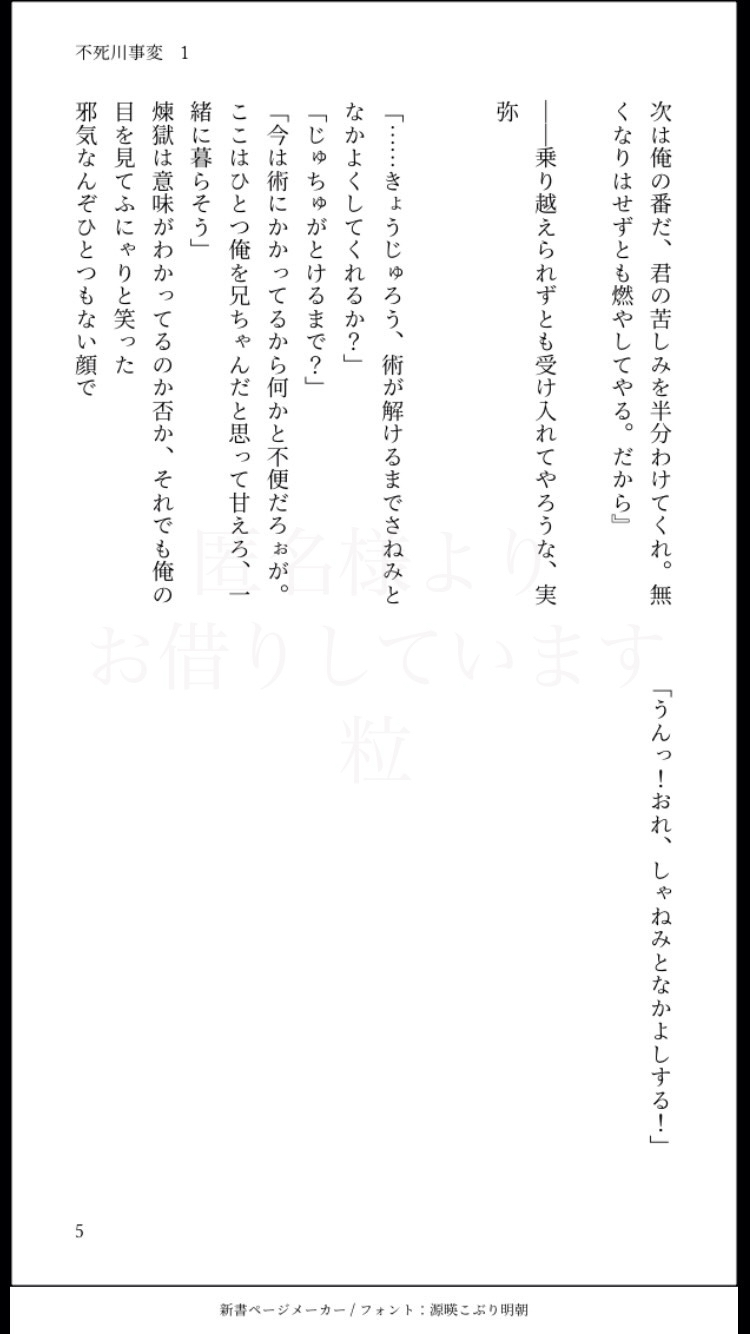 不死川事変　1
次は俺の番だ、君の苦しみを半分わけてくれ。無
くなりはせずとも燃やしてやる。だから』
――乗り越えられずとも受け入れてやろうな、実
弥
「……きょうじゅろう、術が解けるまでさねみと
なかよくしてくれるか？」
「じゅちゅがとけるまで？」
「今は術にかかってるから何かと不便だろぉが。
ここはひとつ俺を兄ちゃんだと思って甘えろ、一
緒に暮らそう」
煉獄は意味がわかってるのか否か、それでも俺の
目を見てふにゃりと笑った
邪気なんぞひとつもない顔で
「うんっ！おれ、しゃねみとなかよしする！」
匿名様より
お借りしています
粒
5
新書ページメーカー / フォント：源暎こぶり明朝